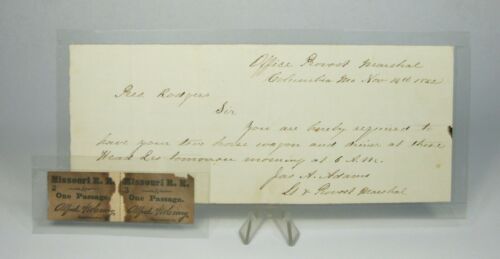 Office Provost Marshal
Columbia Mo Nov 14th 1862
Rodgers
Sir
You are hereby required to
have your two horse wagon and driver at these
Head Qrs tomorrow morning at 6 A.M.
Jas A. Adams
Lt & Provost Marshal
Missouri R. R.
One Passage.
Alfred
Missouri R. R.
One Passage.
Alfred